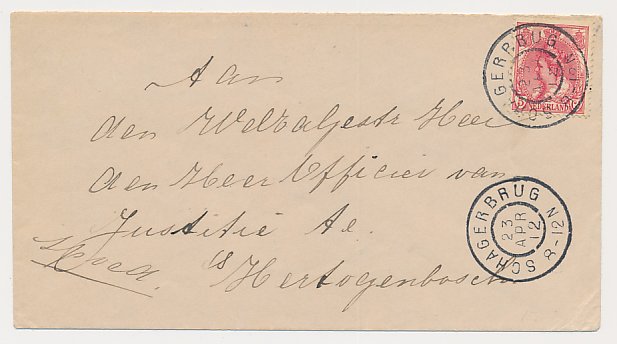 Aan
den WelEdelgestr Heer
den Heer Officier van
Justitie te
's Hertogenbosch
spoed
SCHAGERBRUG N
23
APR
12
8-12
GERBRUG N
NEDERLAND
5